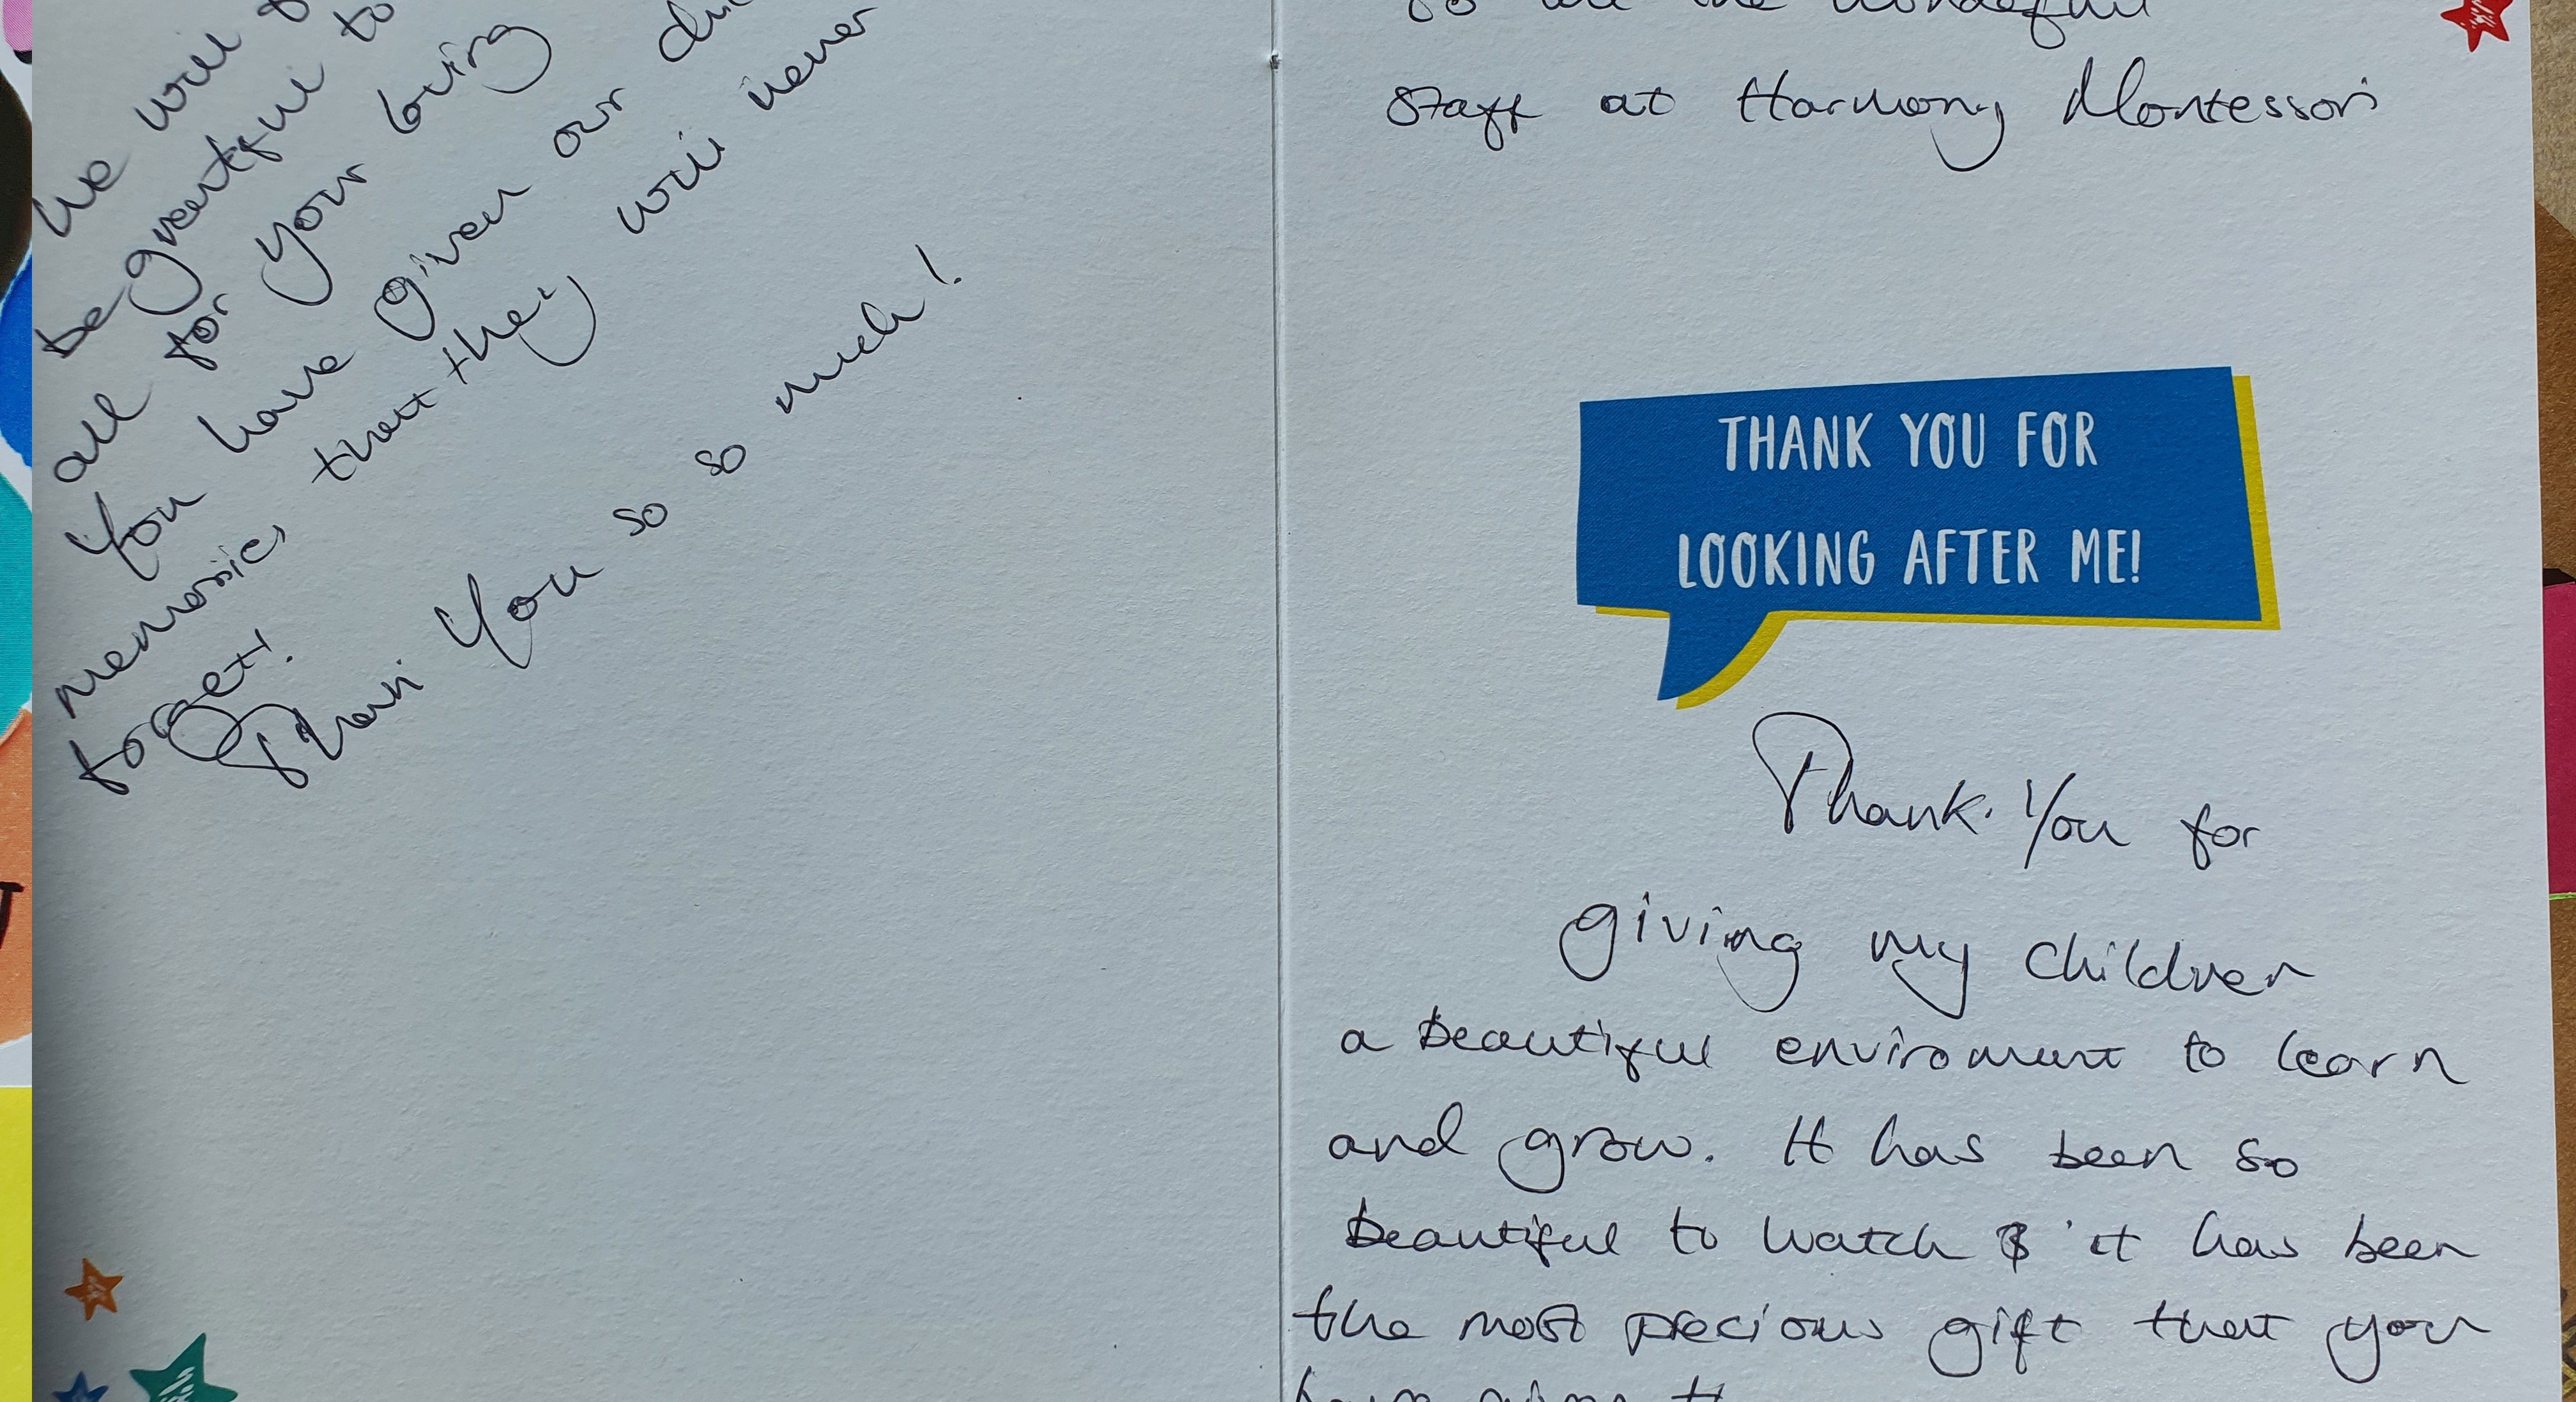 We will
be greatful to
all for your loving
You have given our
memories that they will never
forget!
Thank You so so much!
to all the wonderfull
staff at Harmony Montessori
THANK YOU FOR
LOOKING AFTER ME!
Thank You for
giving my children
a beautiful enviroment to learn
and grow. It has been so
beautiful to watch & it has been
the most precious gift that you